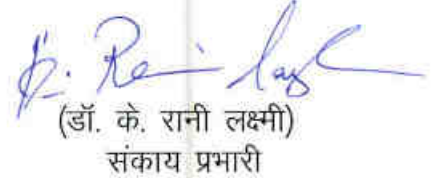 K. Rani Laxmi
(डॉ. के. रानी लक्ष्मी)
संकाय प्रभारी